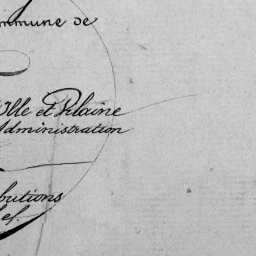 ommune de
Ille et Vilaine
Administration
butions